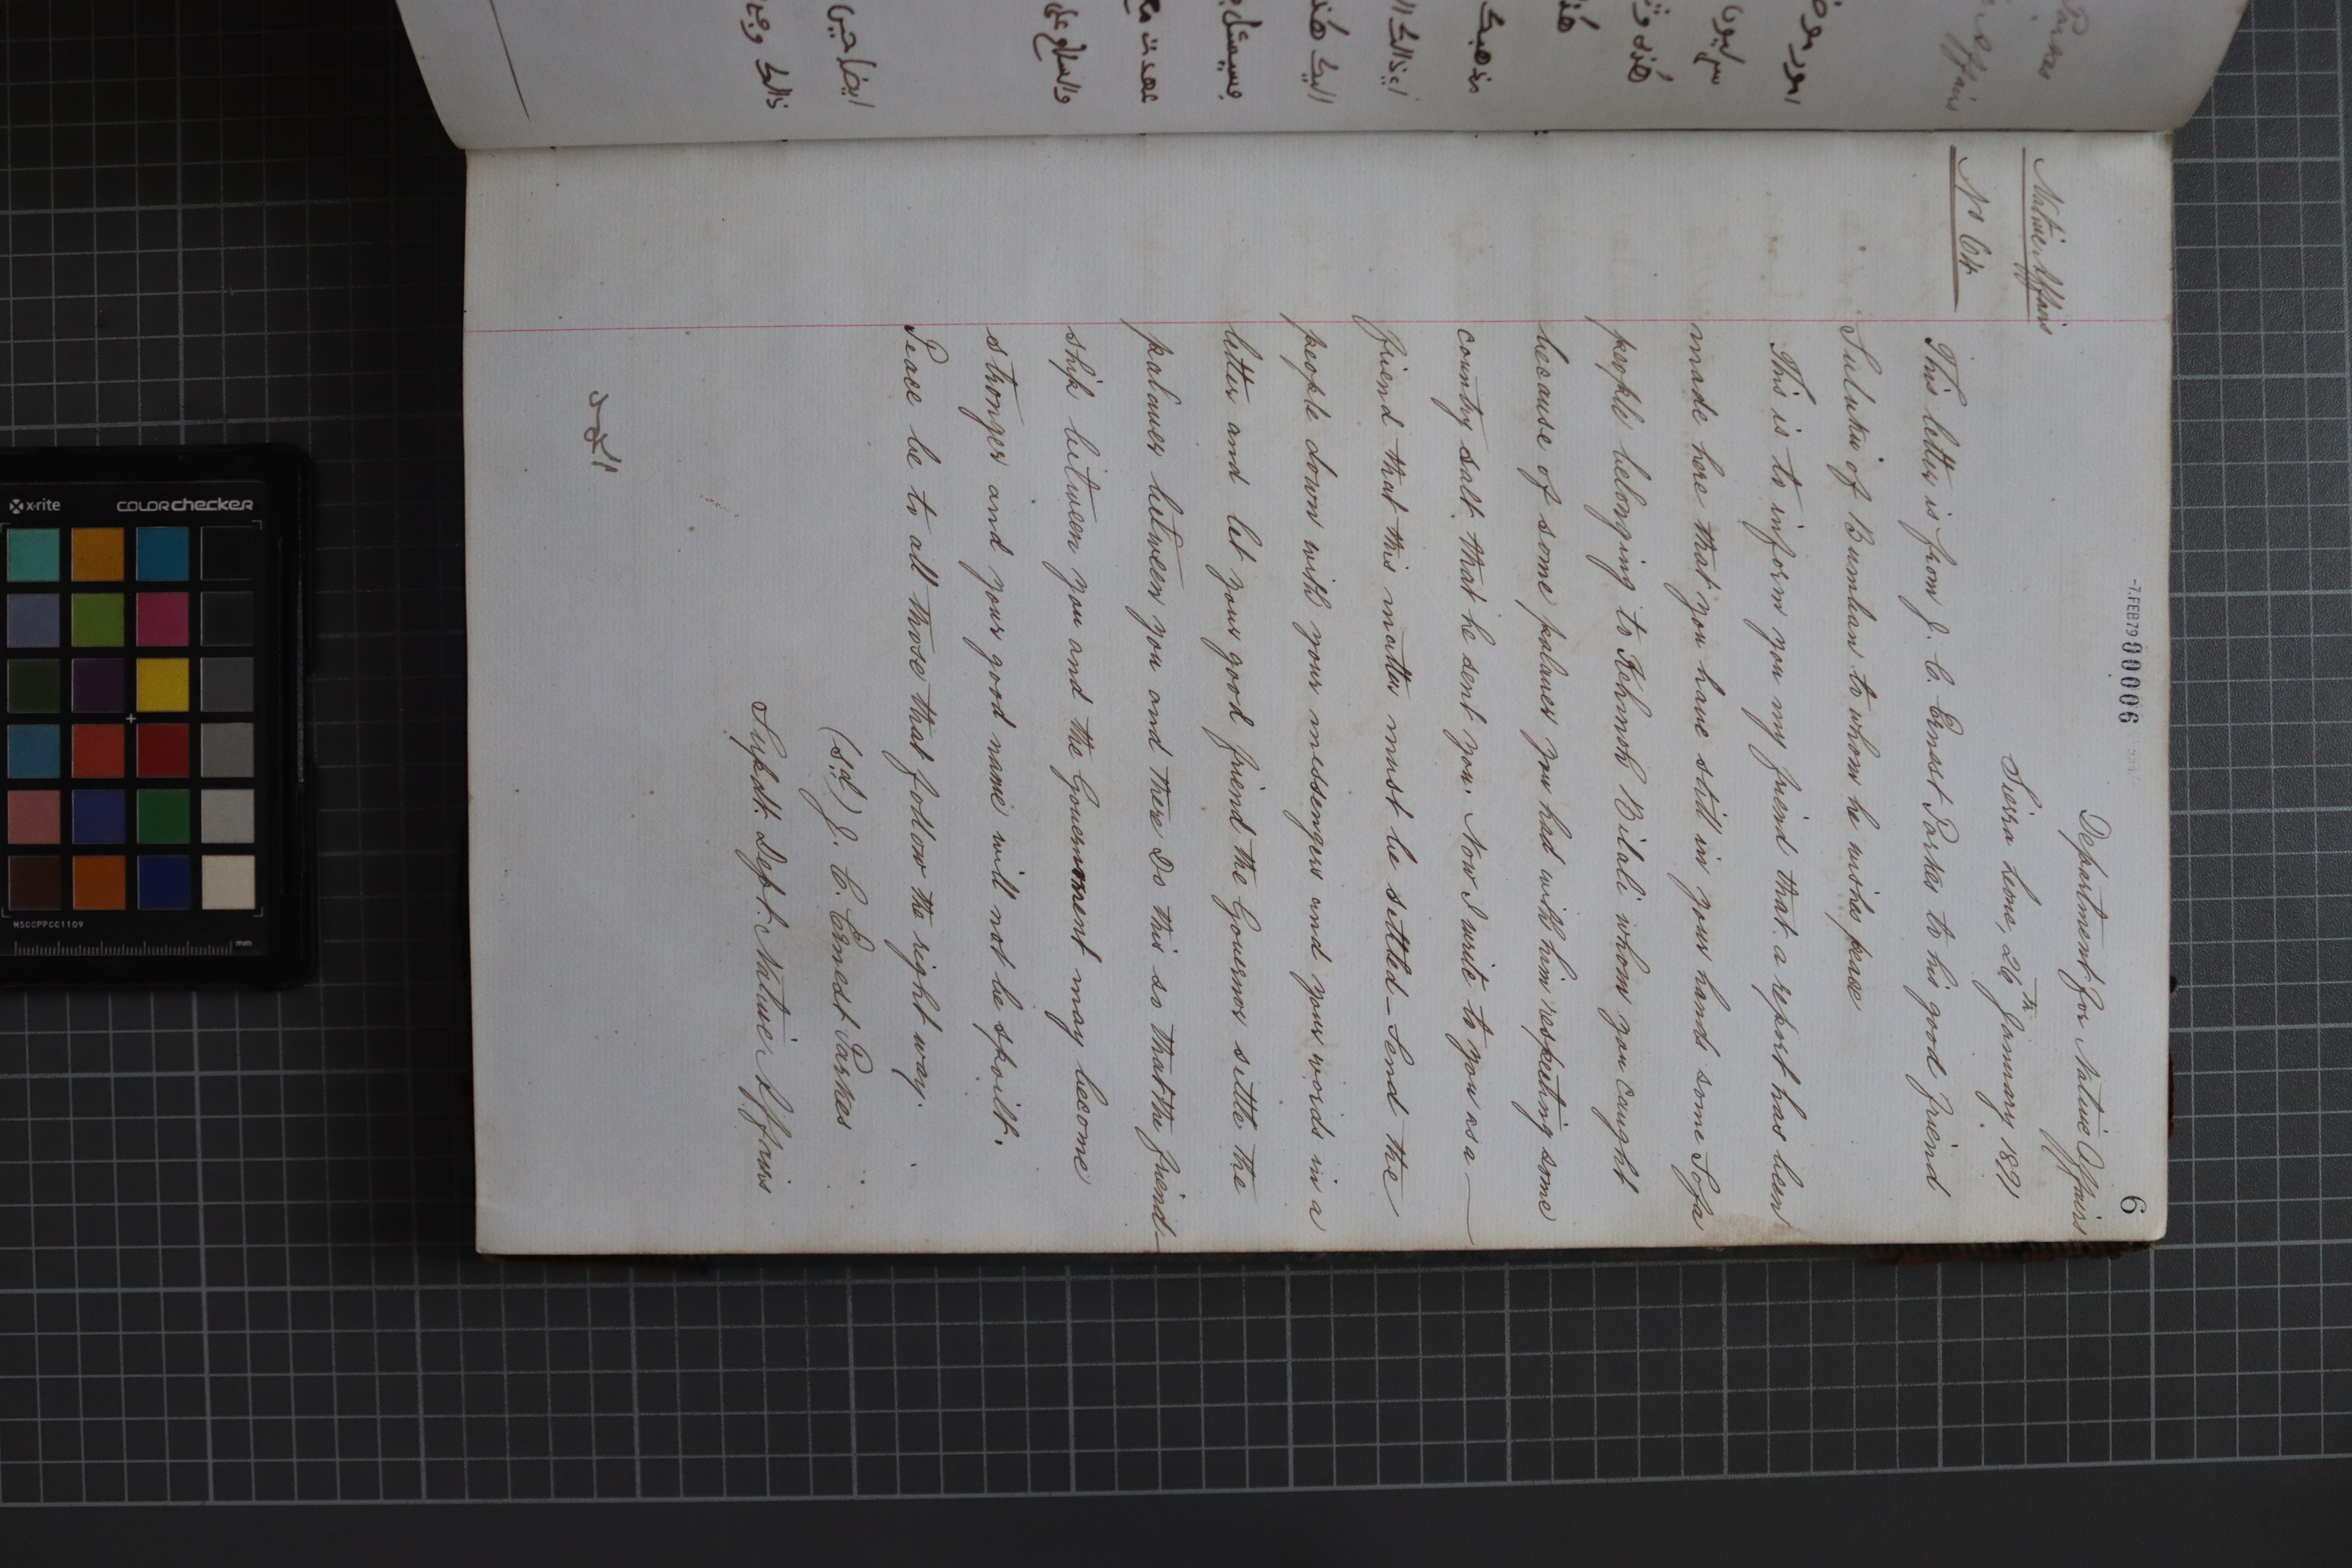 -7.FEB79 000006
6
Department for Native Affairs
Sierra Leone, 26th January 1891
Native Affairs
No 64
This letter is from J. C. Ernest Parkes to his good friend
Suluku of Bumban to whom he wishes peace
This is to inform you my friend that a report has been
made here that you have still in your hands some Sofa
people belonging to Kehmoh Bilali whom you caught
because of some palaver you had with him respecting some
country salt that he sent you. Now I write to you as a
friend that this matter must be settled - Send the
people down with your messengers and your words in a
letter and let your good friend the Governor settle the
palaver between you and them Do this so that the friend-
ship between you and the Government may become
stronger and your good name will not be spoilt.
Peace be to all those that follow the right way.
(sd) J. C. Ernest Parkes
Supdt. Dept. Native Affairs
x-rite
COLORchecker
MSCCPPCC1109
mm